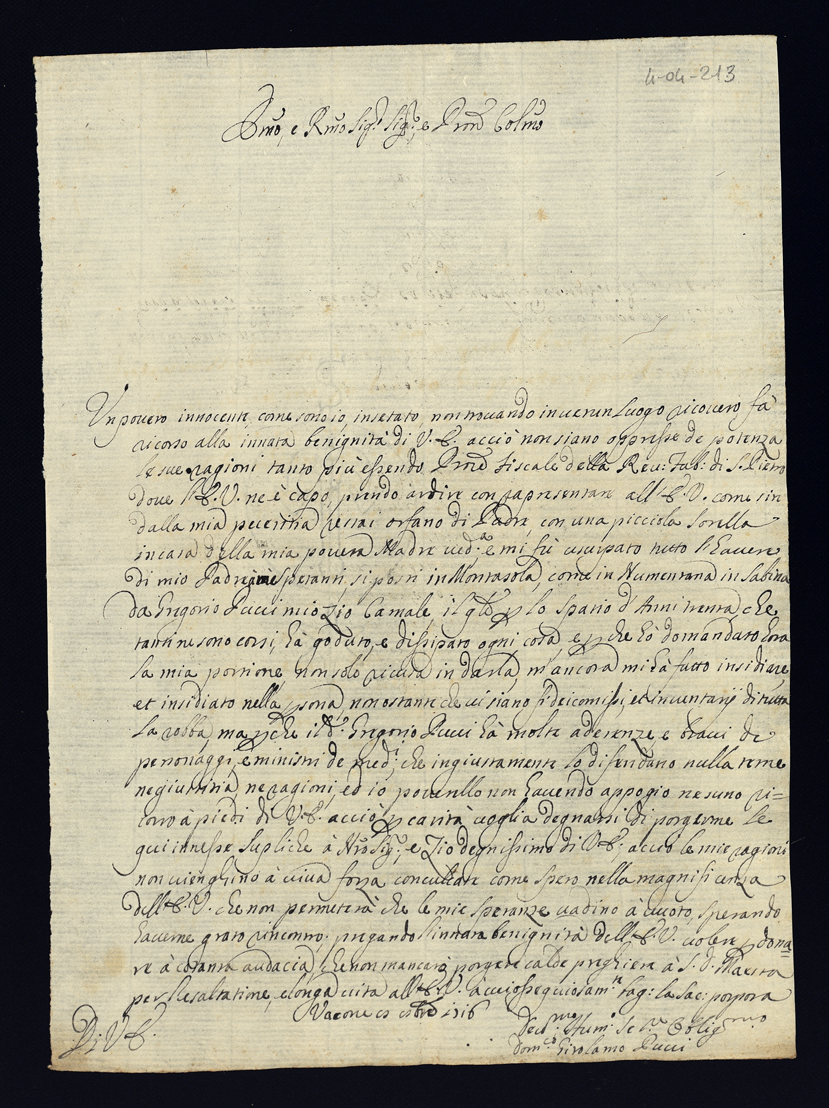 4-04-213
Emo, e Rmo Sig.r Sig.r, e Prone Colmo
Un povero innocente, come sono io, infetato, non trovando in verun luogo ricovero, fà
ricorso alla innata benignità di V. E. acciò non siano oppresse de potenza
le sue ragioni tanto più essendo Prone fiscale della Reu: Fab: di S. Pietro
dove l'E. V. ne è capo, prendo ardire con rapresentare all'E. V. come sin
dalla mia pueritia restai orfano di Padre, con una picciola sorella
in casa della mia povera Madre ved.a e mi fù usurpato tutto l'havere
di mio Padre, speranti, si posti in Montasola, come in Numentana in Sabina
da Gregorio Pucci mio Zio Camale, il qle p lo spatio d'Anni trenta, che
tanti ne sono corsi, hà goduto, e dissipato ogni cosa, e pche hò domandato hora
la mia portione, non solo ricusa in darla, m'ancora mi hà fatto insidiare,
et insidiato nella psona, non ostante che vi siano fideicomissi, et inventarij di tutta
la robba, ma pche il d.o Gregorio Pucci hà molte aderenze, e bracci de
personaggi, e ministri de med.i, che ingiustamente lo difendano nulla teme
ne giustitia, ne ragioni, ed io poverello non havendo appogio nesuno ri=
corro à piedi di V. E. acciò p carità voglia degnarsi di porgerne le
qui innesse supliche à Nro Sig.re, e Zio degnissimo di V. E. acciò le mie ragioni
non vienghino à viva forza conculcate come spero nella magnificenza
dell'E. V. che non permeterà che le mie speranze vadino à vuoto, sperando
haverne grato rincontro: pregando l'innata benignità dell'E. V. volere pdona=
re à cotanta audacia, che non mancarò porgere calde preghiere à S. D. Maestà
per l'esaltatione, e longa vita all'E. V. à cui ossequiosam.te bag: la Sac: porpora
Vacone 1716
Di V. E.
Devmo Hum.o Se.re Obligmo
Dom.co Girolamo Pucci